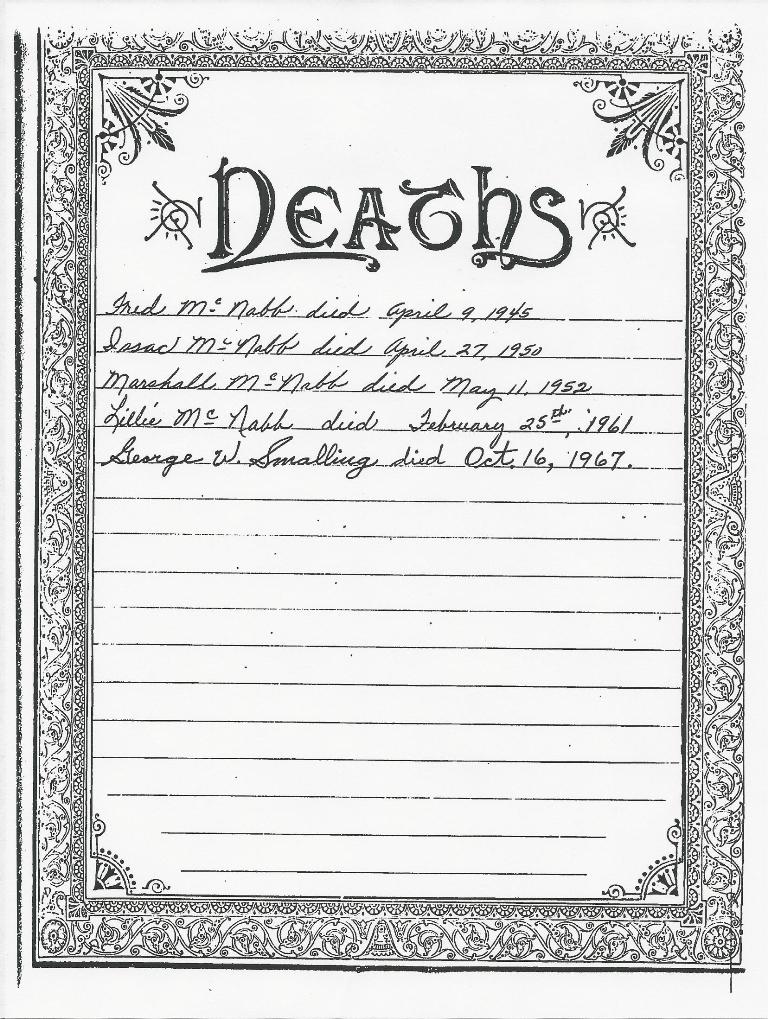 Deaths
Fred Mc Nabb died April 9, 1945
Isaac McNabb died April 27, 1950
Marshall McNabb died May 11, 1952
Lillie Mc Nabb died February 25th, 1961
George W. Smalling died Oct. 16, 1967.